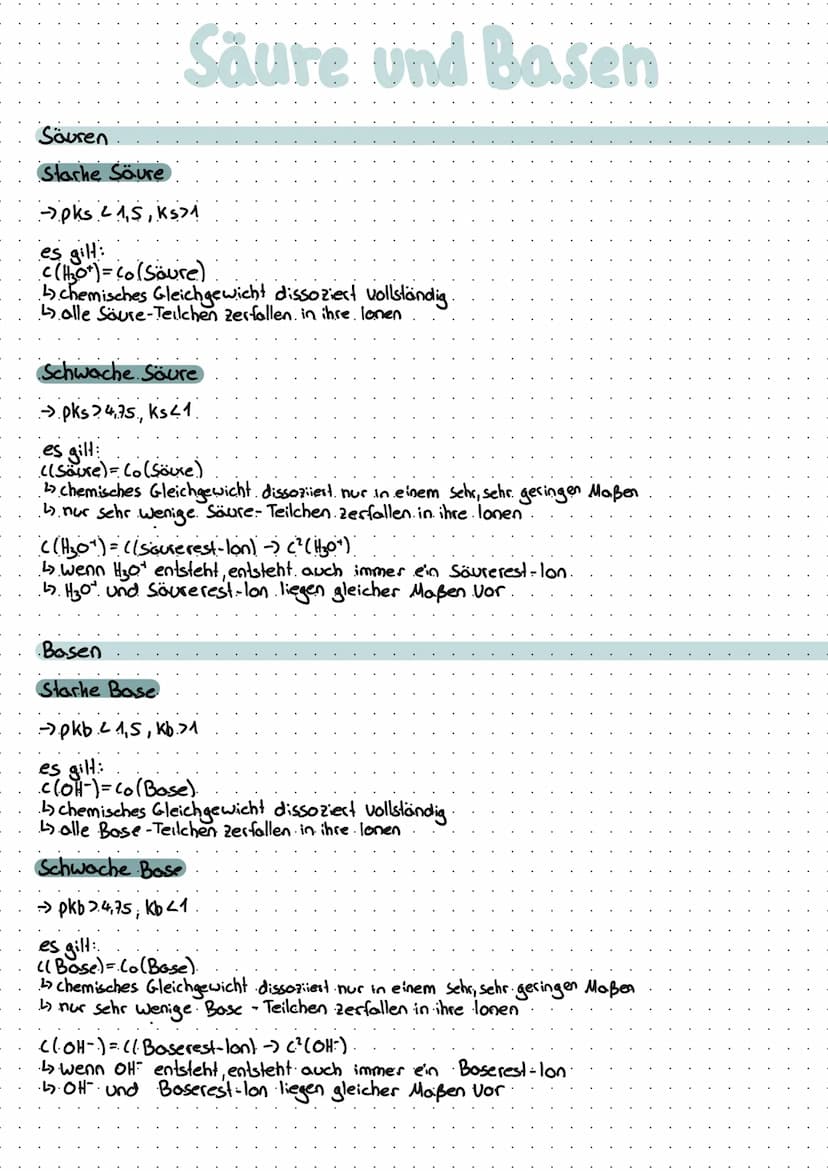 Säure und Basen
Säuren
Starke Säure
→ pks < 1,5, Ks>1
es gilt:
c(H₃O⁺)= Co(Säure)
↳ chemisches Gleichgewicht dissoziert vollständig
↳ alle Säure-Teilchen zerfallen in ihre Ionen
Schwache Säure
→ pks > 4,75, Ks<1
es gilt:
c(Säure)= Co(Säure)
↳ chemisches Gleichgewicht dissoziiert nur in einem sehr, sehr geringen Maßen
↳ nur sehr wenige Säure-Teilchen zerfallen in ihre Ionen
c(H₃O⁺)= c(Säurerest-Ion) → c²(H₃O⁺)
↳ wenn H₃O⁺ entsteht, entsteht auch immer ein Säurerest-Ion
↳ H₃O⁺ und Säurerest-Ion liegen gleicher Maßen vor
Basen
Starke Base
→ pkb < 1,5, Kb >1
es gilt:
c(OH⁻)= Co(Base)
↳ chemisches Gleichgewicht dissoziert vollständig
↳ alle Base-Teilchen zerfallen in ihre Ionen
Schwache Base
→ pkb > 4,75, Kb <1
es gilt:
c(Base)= Co(Base)
↳ chemisches Gleichgewicht dissoziiert nur in einem sehr, sehr geringen Maßen
↳ nur sehr wenige Base - Teilchen zerfallen in ihre Ionen
c(OH⁻)= c(Baserest-Ion) → c²(OH⁻)
↳ wenn OH⁻ entsteht, entsteht auch immer ein Baserest-Ion
↳ OH⁻ und Baserest-Ion liegen gleicher Maßen vor